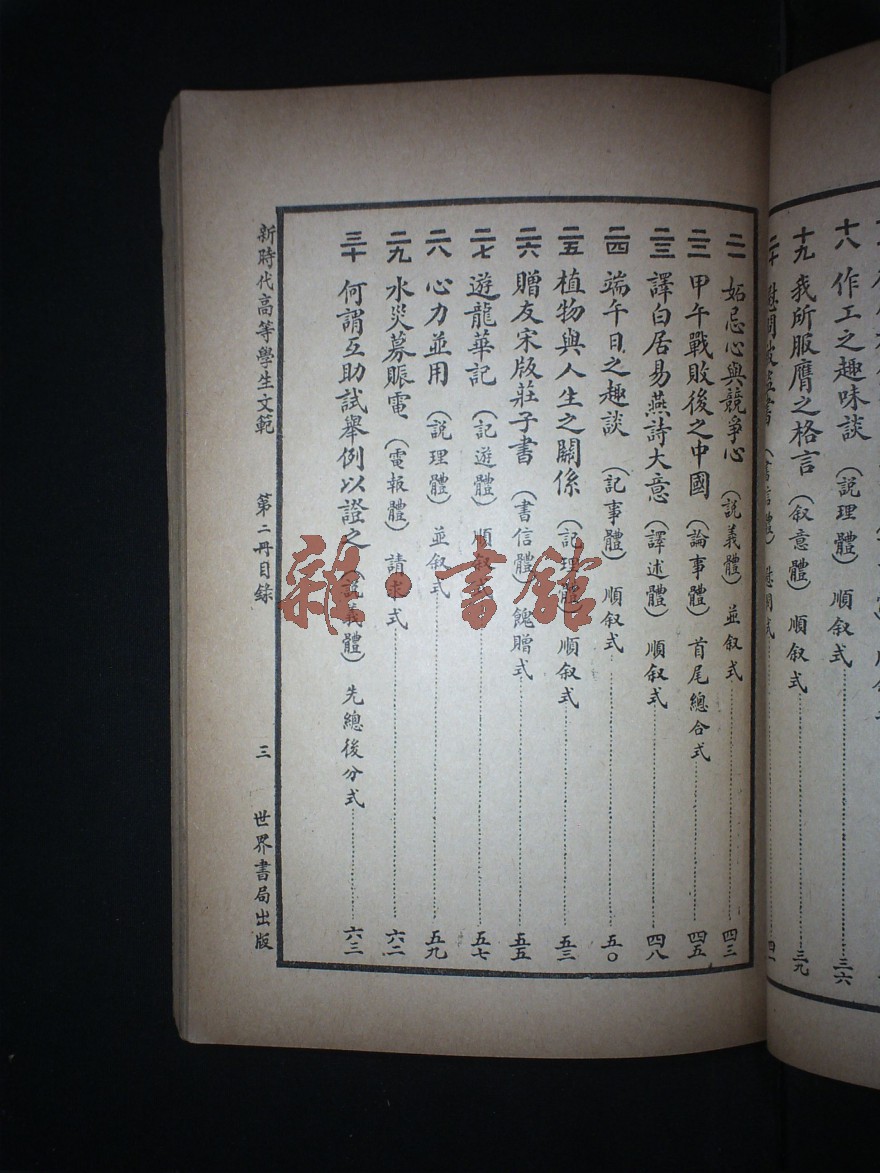 十八 作工之趣味談 (說理體) 順叙式 三六
十九 我所服膺之格言 (叙意體) 順叙式 三九
二一 妬忌心與競爭心 (說義體) 並叙式 四三
二二 甲午戰敗後之中國 (論事體) 首尾總合式 四五
二三 譯白居易燕詩大意 (譯述體) 順叙式 四八
二四 端午日之趣談 (記事體) 順叙式 五〇
二五 植物與人生之關係 (記理體) 順叙式 五三
二六 贈友宋版莊子書 (書信體) 餽贈式 五五
二七 遊龍華記 (記遊體) 順叙式 五七
二八 心力並用 (說理體) 並叙式 五九
二九 水災募賑電 (電報體) 請求式 六二
三十 何謂互助試舉例以證之 (說義體) 先總後分式 六三
新時代高等學生文範 第二冊目錄 三 世界書局出版
雜·書館